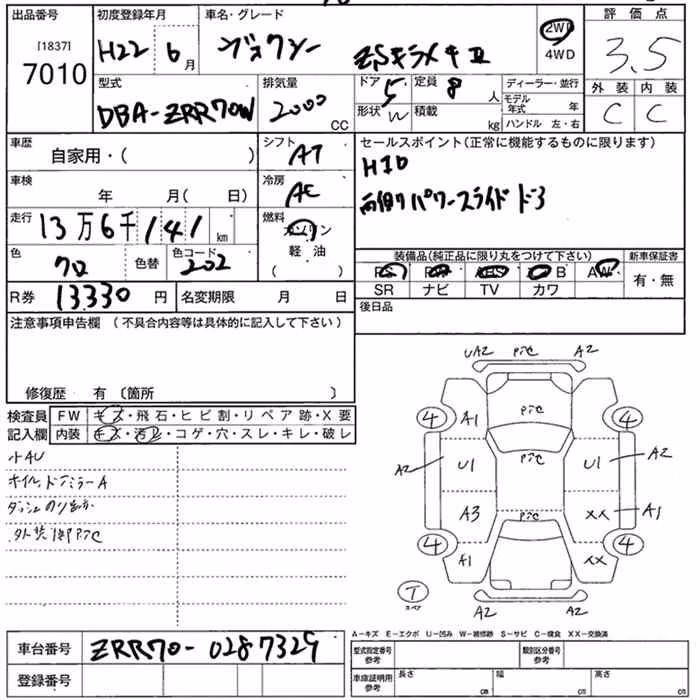 出品番号 初度登録年月 車名・グレード 評価点
[1837]
7010 H22 6月 ヴォクシー ZSキラメキⅡ 2WD 3.5
4WD
型式 排気量 ドア 5 定員 8人 ディーラー・並行 外装 内装
DBA-ZRR70W 2000CC 形状 W 積載 kg モデル年式 年 C C
ハンドル 左・右
車歴 シフト セールスポイント(正常に機能するものに限ります)
自家用・( ) AT HID
車検 冷房 両側パワースライドドア
年 月( 日) AC
走行 13万6千141km 燃料 ガソリン
軽油
( )
色 クロ 色替 色コード 202
装備品(純正品に限り丸をつけて下さい) 新車保証書
PS PW ABS B AW 有・無
SR ナビ TV カワ
R券 13330円 名変期限 月 日
後日品
注意事項申告欄 (不具合内容等は具体的に記入して下さい)
修復歴 有 〔箇所 〕
検査員 FW キズ・飛石・ヒビ割・リペア跡・X要
記入欄 内装 キズ・汚レ・コゲ・穴・スレ・キレ・破レ
小4U
ホイル、ドアミラーA
ダッシュのり
外装
UA2 P"C A2
4 A1 P"C 4
A2 U1 P"C U1 A2
A3 P"C XX A1
4 A1 XX 4
T
スペア
A2 A2
A-キズ E-エクボ U-凹み W-補修跡 S-サビ C-腐食 XX-交換済
車台番号 ZRR70-0287329
型式指定番号 参考 類別区分番号 参考
登録番号
車庫証明用 参考 長さ cm 幅 cm 高さ cm